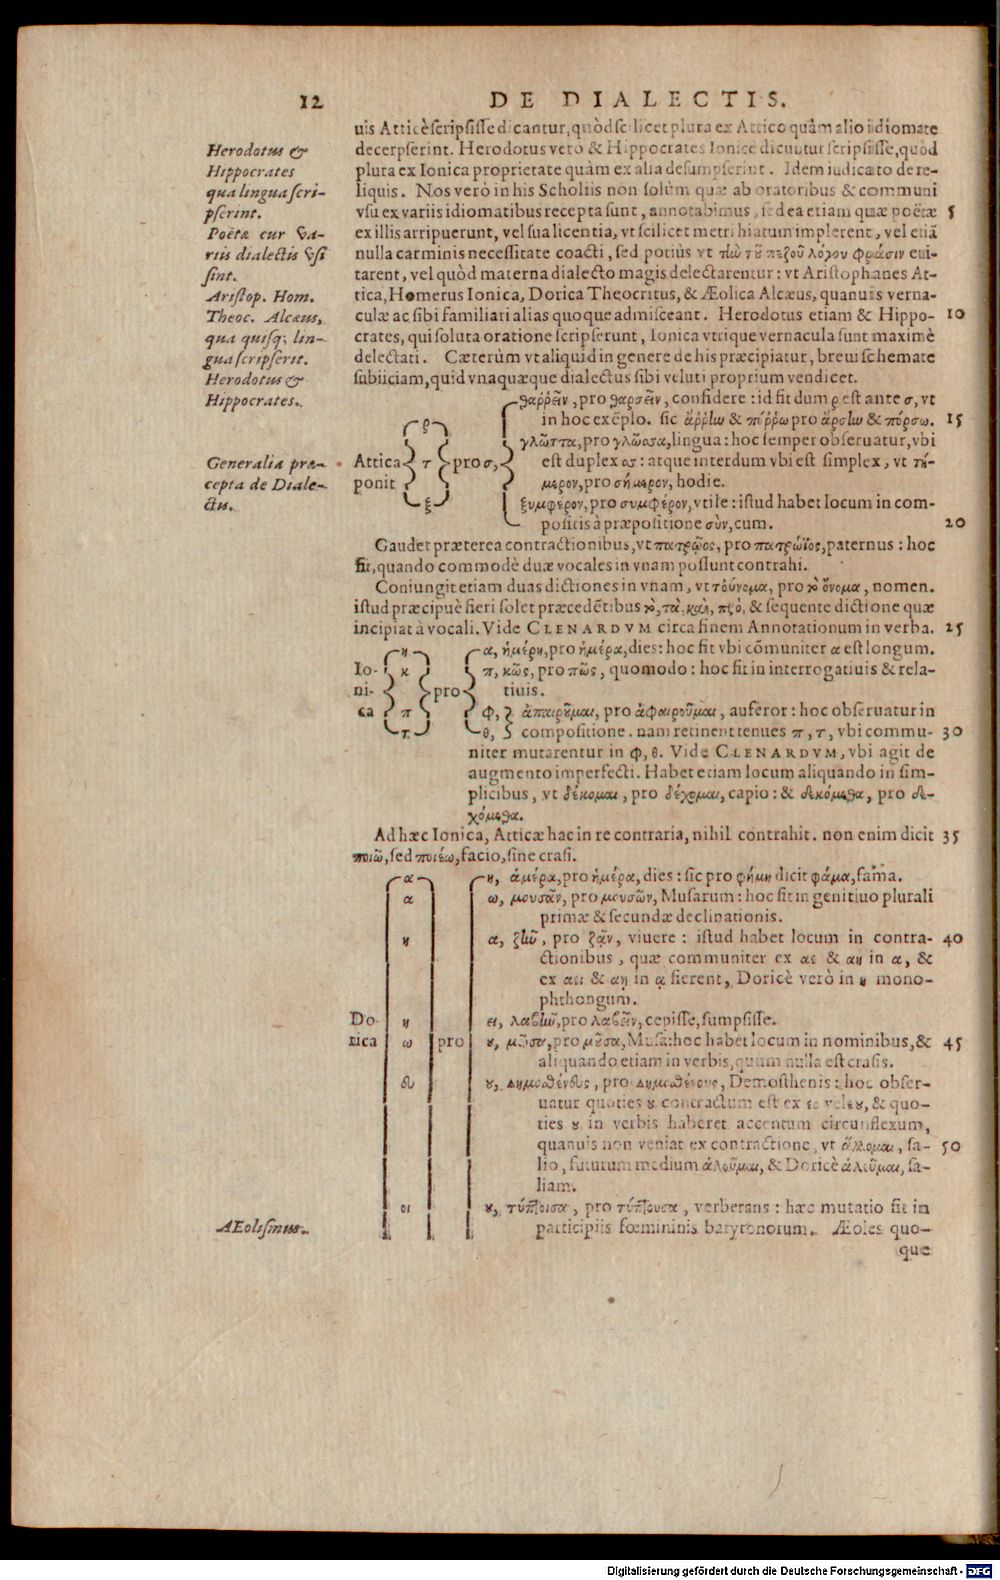 12 DE DIALECTIS.
uis Atticè scripsisse dicantur, quòd scilicet plura ex Attico quàm alio idiomate
decerpserint. Herodotus verò & Hippocrates Ionicè dicuntur scripsisse, quòd
plura ex Ionica proprietate quàm ex alia desumpserint. Idem iudicato de re-
liquis. Nos verò in his Scholiis non solùm quæ ab oratoribus & communi
vsu ex variis idiomatibus recepta sunt, annotabimus, sed ea etiam quæ poëtæ 5
ex illis arripuerunt, vel sua licentia, vt scilicet metri hiatum implerent, vel etiã
nulla carminis necessitate coacti, sed potiùs vt τὴν τοῦ πεζοῦ λόγου φράσιν eui-
tarent, vel quòd materna dialecto magis delectarentur: vt Aristophanes At-
tica, Homerus Ionica, Dorica Theocritus, & Æolica Alcæus, quanuis verna-
culæ ac sibi familiari alias quoque admisceant. Herodotus etiam & Hippo- 10
crates, qui soluta oratione scripserunt, Ionica vtrique vernacula sunt maximè
delectati. Cæterùm vt aliquid in genere de his præcipiatur, breui schemate
subiiciam, quid vnaquæque dialectus sibi veluti proprium vendicet.
Herodotus &
Hippocrates
qua lingua scri-
pserint.
Poëtæ cur va-
riis dialectis vsi
sint.
Aristop. Hom.
Theoc. Alcæus,
qua quisq; lin-
gua scripserit.
Herodotus &
Hippocrates.
Generalia præ-
cepta de Diale-
ctis.
Attica
ponit
ρ
τ
ξ
pro σ,
θαῤῥεῖν, pro θαρσεῖν, confidere: id fit dum ρ est ante σ, vt
in hoc exẽplo. sic ἄῤῥην & πύῤῥω pro ἄρσην & πύρσω. 15
γλῶττα, pro γλῶσσα, lingua: hoc semper obseruatur, vbi
est duplex σσ: atque interdum vbi est simplex, vt τή-
μερον, pro σήμερον, hodie.
ξυμφέρον, pro συμφέρον, vtile: istud habet locum in com-
positis à præpositione σὺν, cum. 20
Gaudet præterea contractionibus, vt πατρῷος, pro πατρώϊος, paternus: hoc
fit, quando commodè duæ vocales in vnam possunt contrahi.
Coniungit etiam duas dictiones in vnam, vt τοὔνομα, pro τὸ ὄνομα, nomen.
istud præcipuè fieri solet præcedẽtibus τὸ, τὰ, καὶ, πρὸ, & sequente dictione quæ
incipiat à vocali. Vide CLENARDVM circa finem Annotationum in verba. 25
Io-
ni-
ca
η
κ
π
τ
pro
α, ἡμέρη, pro ἡμέρα, dies: hoc fit vbi cõmuniter α est longum.
π, κῶς, pro πῶς, quomodo: hoc fit in interrogatiuis & rela-
tiuis.
φ, ἀπαιρῦμαι, pro ἀφαιροῦμαι, auferor: hoc obseruatur in
θ, compositione. nam retinent tenues π, τ, vbi commu- 30
niter mutarentur in φ, θ. Vide CLENARDVM, vbi agit de
augmento imperfecti. Habet etiam locum aliquando in sim-
plicibus, vt δέκομαι, pro δέχομαι, capio: & δεκόμεθα, pro δε-
χόμεθα.
Ad hæc Ionica, Atticæ hac in re contraria, nihil contrahit. non enim dicit 35
ποιῶ, sed ποιέω, facio, sine crasi.
Do-
rica
α
α
η
η
ω
ευ
οι
pro
η, ἁμέρα, pro ἡμέρα, dies: sic pro φήμη dicit φάμα, fama.
ω, μουσᾶν, pro μουσῶν, Musarum: hoc fit in genitiuo plurali
primæ & secundæ declinationis.
α, ζῆν, pro ζᾶν, viuere: istud habet locum in contra- 40
ctionibus, quæ communiter ex αε & αη in α, &
ex αει & αῃ in ᾳ fierent, Doricè verò in η mono-
phthongum.
ει, λαβῆν, pro λαβεῖν, cepisse, sumpsisse.
ου, μῶσα, pro μοῦσα, Musa: hoc habet locum in nominibus, & 45
aliquando etiam in verbis, quum nulla est crasis.
ου, Δημοσθένευς, pro Δημοσθένους, Demosthenis: hoc obser-
uatur quoties ου contractum est ex εο vel εου, & quo-
ties ου in verbis haberet accentum circunflexum,
quanuis non veniat ex contractione, vt ἅλλομαι, sa- 50
lio, futurum medium ἁλοῦμαι, & Doricè ἁλεῦμαι, sa-
liam.
ου, τύπτοισα, pro τύπτουσα, verberans: hæc mutatio fit in
participiis fœmininis barytonorum. Æoles quo-
que
AEolismus.
Digitalisierung gefördert durch die Deutsche Forschungsgemeinschaft - DFG